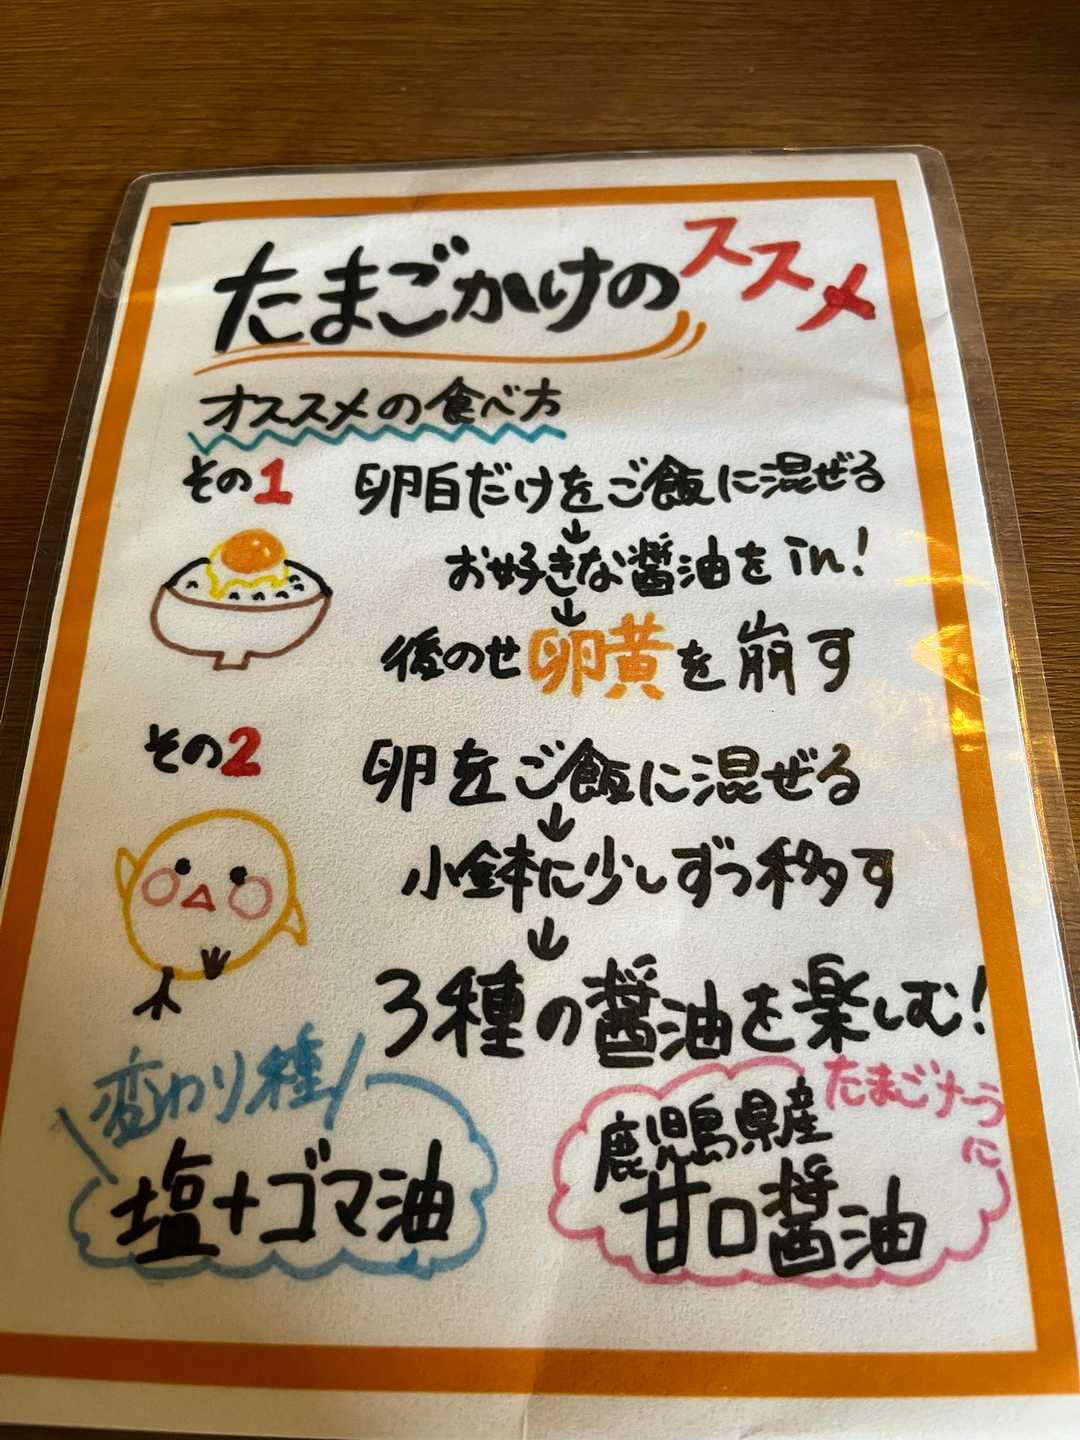 たまごかけのススメ
オススメの食べ方
その1 卵白だけをご飯に混ぜる
↓
お好きな醤油をin!
↓
後のせ卵黄を崩す
その2 卵をご飯に混ぜる
↓
小鉢に少しずつ移す
↓
3種の醤油を楽しむ!
変わり種!
塩+ゴマ油
たまごけーうに
鹿児島県産
甘口醤油